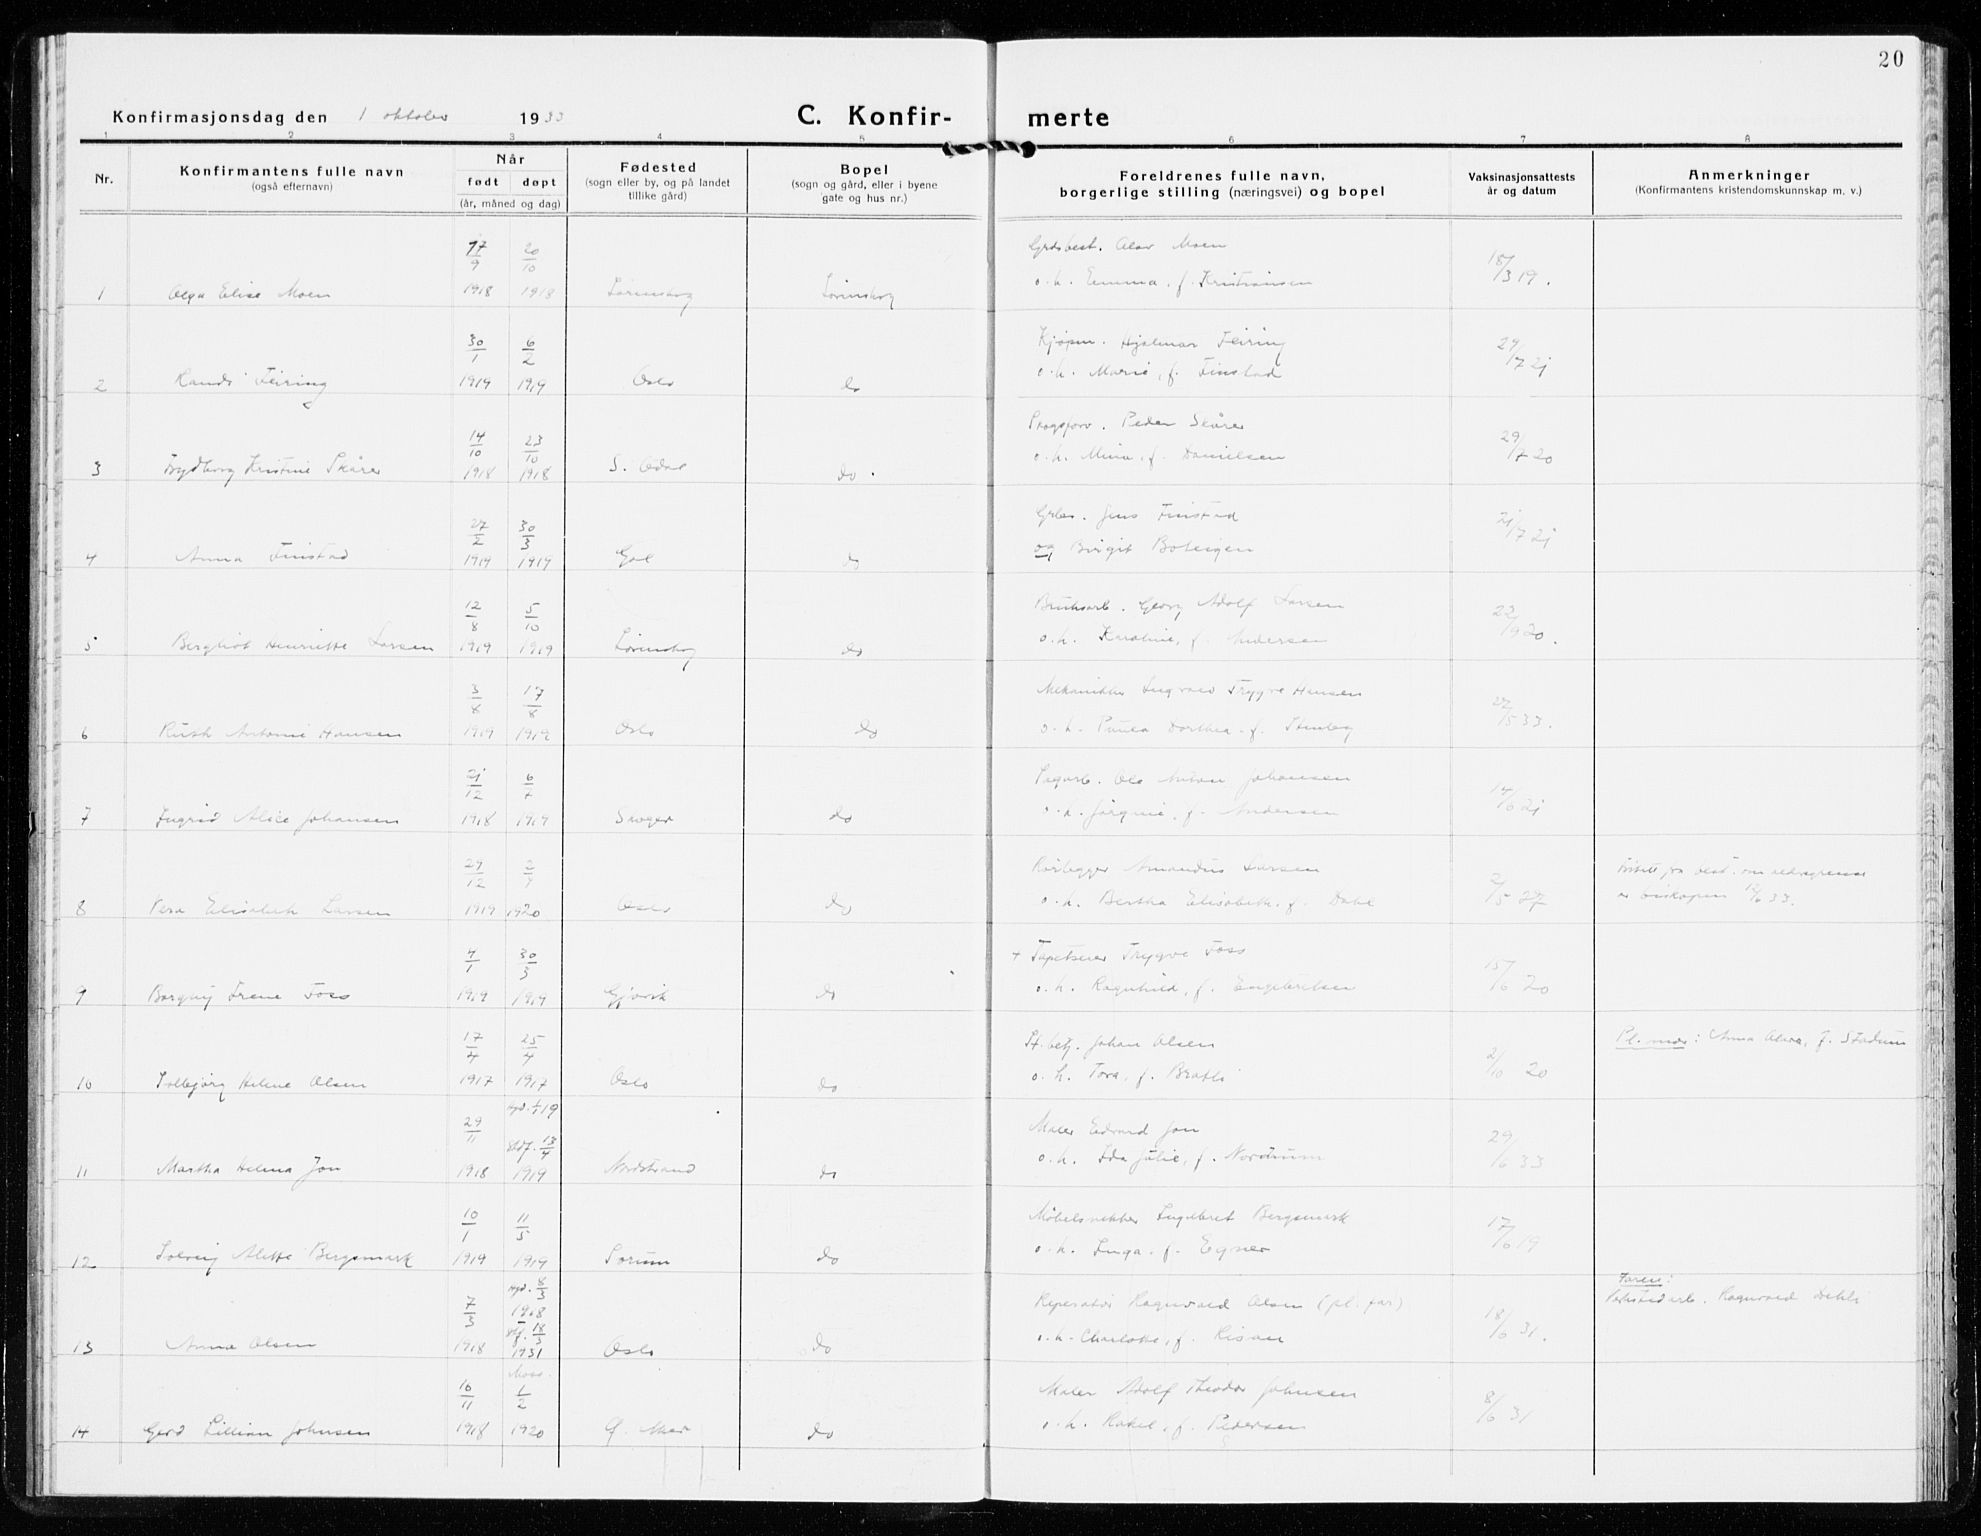 20
Konfirmasjonsdag den 1 oktober 1933
C. Konfir- merte
1 2 3 4 5 6 7 8
Nr.
Konfirmantens fulle navn
(også efternavn)
Når
født døpt
(år, måned og dag)
Fødested
(sogn eller by, og på landet
tillike gård)
Bopel
(sogn og gård, eller i byene
gate og hus nr.)
Foreldrenes fulle navn,
borgerlige stilling (næringsvei) og bopel
Vaksinasjonsattests
år og datum
Anmerkninger
(Konfirmantens kristendomskunnskap m. v.)
17/9 20/10 Grdsbest. Olav Moen
1 Olga Elise Moen 1918 1918 Lørenskog Lørenskog o. h. Emma, f. Kristiansen 18/3 19.
30/1 6/2 Kjøpm. Hjalmar Feiring
2 Randi Feiring 1919 1919 Oslo do o. h. Marie, f. Finstad 29/7 21
14/10 23/10 Skogsforv. Peder Skårer
3 Frydborg Kristine Skårer 1918 1918 S. Odal do. o. h. Mina, f. Danielsen 29/7 20
27/2 30/3 Jens Finstad
4 Anna Finstad 1919 1919 Gol do og Birgit 21/7 21
12/8 5/10 Bruksarb. Georg Adolf Larsen
5 Bergliot Henriette Larsen 1919 1919 Lørenskog do o. h. Karoline, f. Andersen 22/9 20.
3/8 17/8 Mekaniker Ingvald Trygve Hansen
6 Ruth Antonie Hansen 1919 1919 Oslo do o. h. Paula Dorthea, f. 27/5 33.
21/12 6/7 Sagarb. Ole Anton Johansen
7 Ingrid Alice Johansen 1918 1919 Skoger do o. h. Jørgine, f. Andersen 14/6 21
29/12 2/4 Rørlegger Amandus Larsen
8 Vera Elisabeth Larsen 1919 1920 Oslo do o. h. Bertha Elisabeth, f. Dahl 2/5 27
Fritatt fra best. om aldersgrense
av biskopen 33.
4/1 30/3 + Tapetserer Trygve Foss
9 Borghy Irene Foss 1919 1919 Gjøvik do o. h. Ragnhild, f. Engebretsen 15/6 20
17/4 25/4 St. betj. Johan Olsen Pl. mor: Anna f. Stadum
10 Solbjørg Helene Olsen 1917 1917 Oslo do o. h. Tora, f. Bratli 2/10 20
29/11 Hjd. 1/1 19 Stdf. 13/4 Maler Edvard Jon
11 Martha Helena Jon 1918 1919 Nordstrand do o. h. Ida Julie, f. Nordrum 29/6 33
10/1 11/5 Møbelsnekker Ingebret Bergsmark
12 Solveig Alette Bergsmark 1919 1919 Sørum do o. h. Inga, f. Egner 17/6 19
7/3 Hjd. 8/3 1918 18/3 Reperatør Ragnvald Olsen (pl. far)
Faren:
Verkstedarb. Ragnvald Dehli
13 Anna Olsen 1918 1931 Oslo do o. h. Charlotte, f. Risan 18/6 31.
10/11 Moss. 1/2 Maler Adolf Theodor Johnsen
14 Gerd Lillian Johnsen 1918 1920 Ø. Aker do o. h. Rakel, f. Pedersen 8/6 31